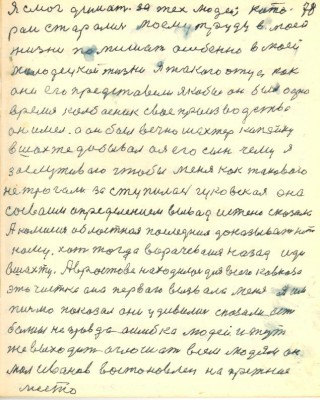 Я смог думат. за тех людей, кото- 98
рам старалис моему труду в моей
жизни помишат особенно в моей
молодецкой жизни я такого отца, как
они его представели якобы он был одно
время колбасник свое производство
он имел. а он был вечно шахтер копейку
в шахте добывал а я его сын чему я
заслуживаю чтобы меня как такового
не трогали заступилас гуковская она
со своим определением вывод
А комисия областная последния доказывает
кому, хот тогда ворочевшия назад иди
в шахту. А в ростове находилас для всего ковказа
это чистка она первого вызвала меня я им
писмо показал они удивилис сказали ест
болши не правда ошибка людей и тут
же выходит оглошает всем людям он
мол иванов востоновлен на прежние
место